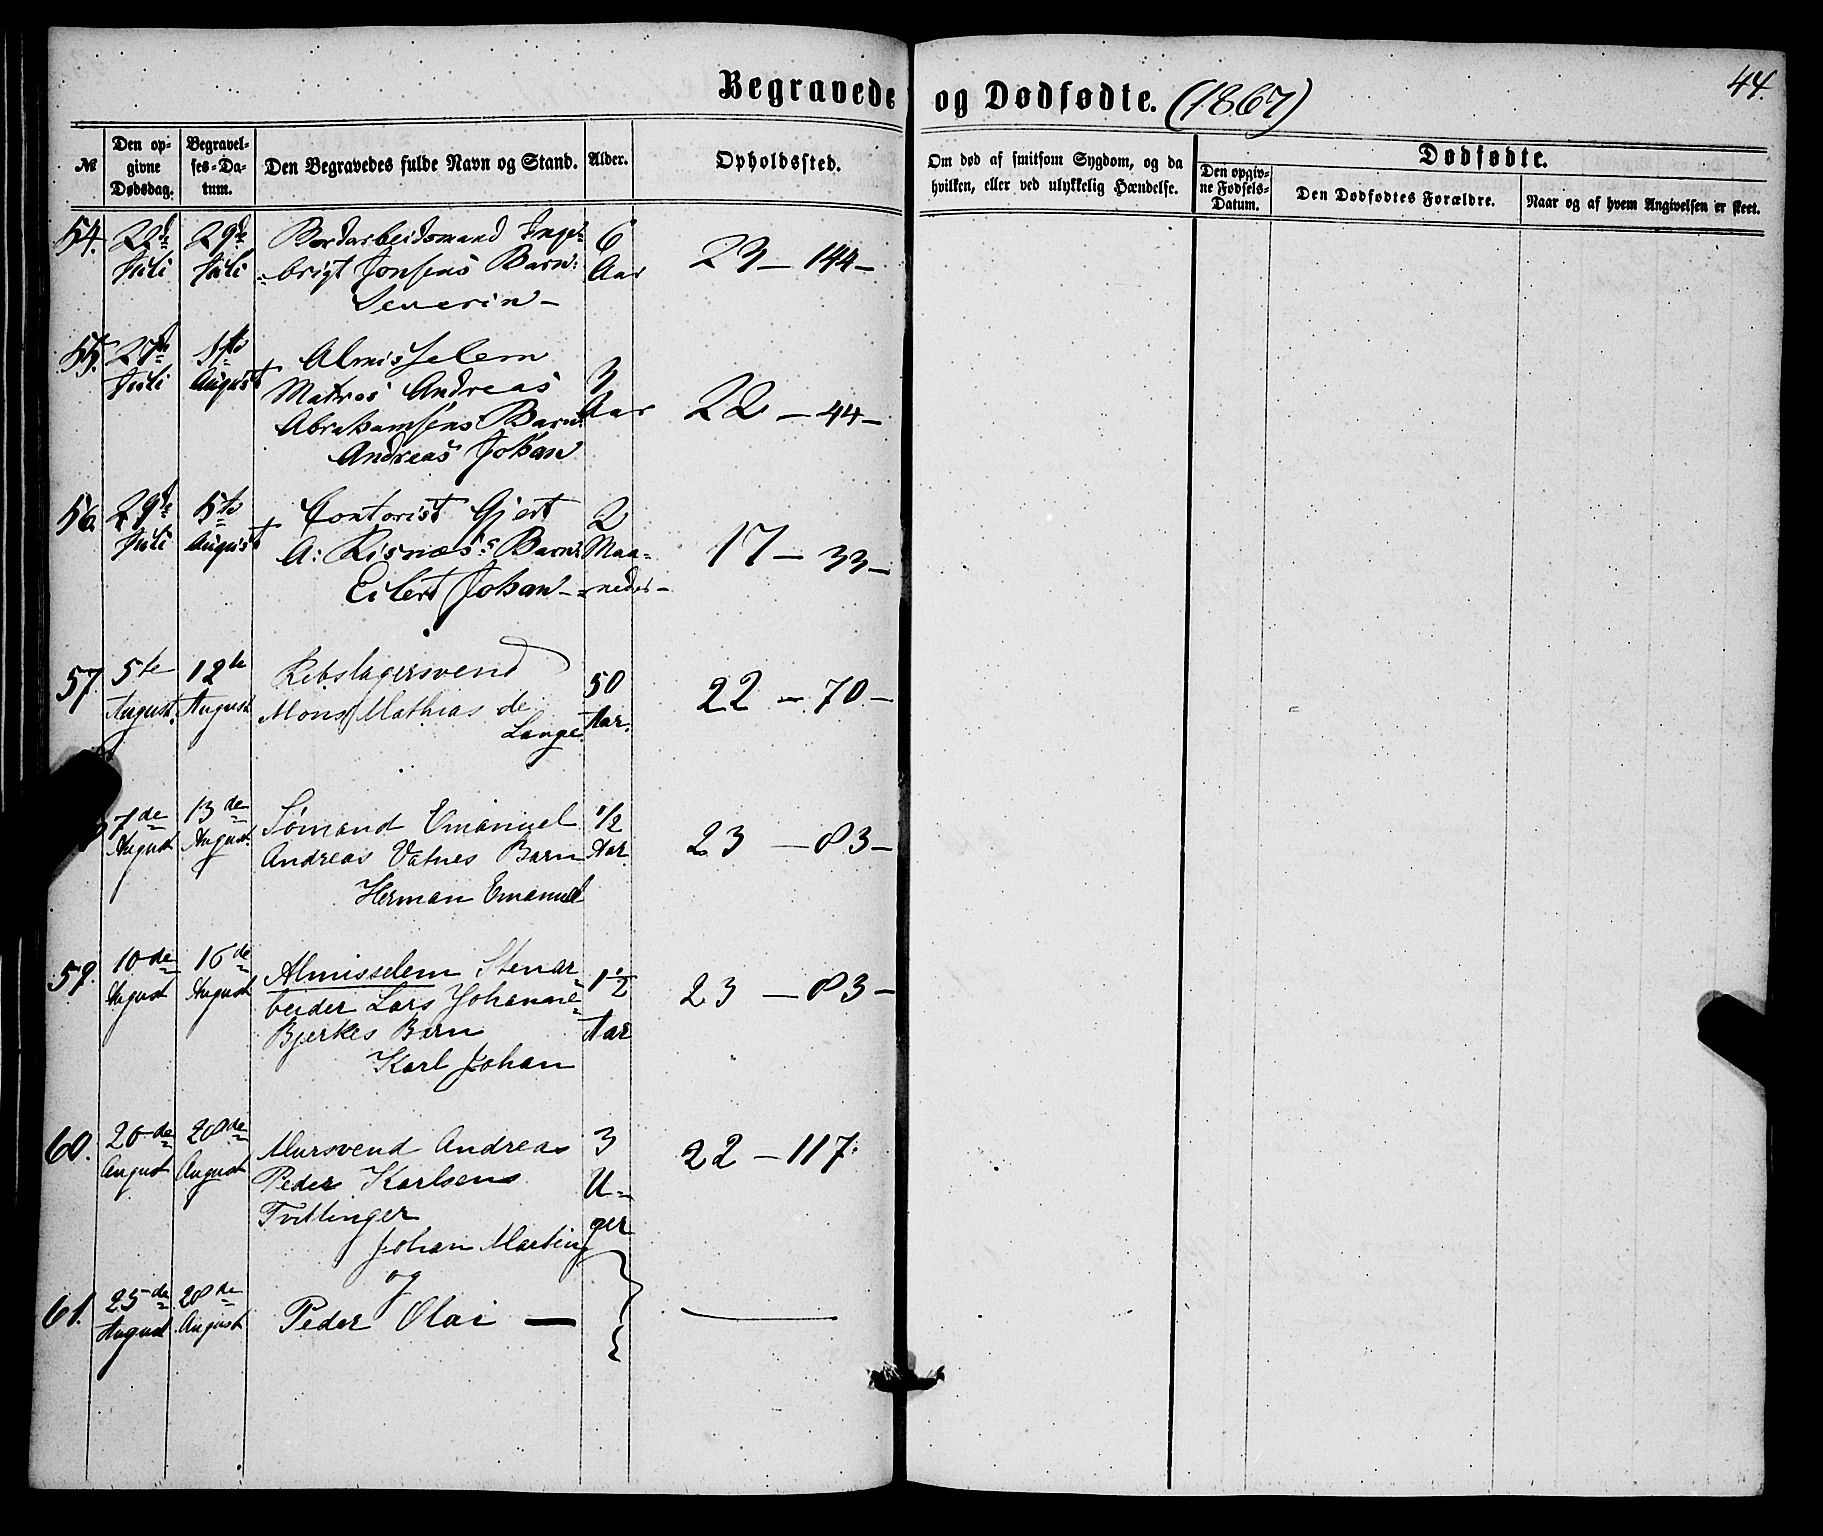 Begravede og Dødfødte. (1867)
44.
No
Den opgivne Dødsdag.
Begravelses-Datum.
Den Begravedes fulde Navn og Stand.
Alder.
Opholdssted.
Om død af smitsom Sygdom, og da hvilken, eller ved ulykkelig Hændelse.
Dødfødte.
Den opgivne Fødsels-Datum.
Den Dødfødtes Forældre.
Naar og af hvem Angivelsen er skeet.
54. 22de Juli 29de Juli
Bordarbeidsmand Ingel-
brigt Jonsens Barn:
Severin –
6 Aar
23 – 144 –
55. 27de Juli 1ste August
Almisselem
Matros Andreas
Abrahamsens Barn:
Andreas Johan
3 Aar
22 – 44 –
56. 29de Juli 5te August
Contorist Gjert
A: Risnæs's Barn:
Eilert Johan –
2 Maa-
neder –
17 – 33 –
57. 5te August. 12te August
Rebslagersvend
Mons Mathias de
Lange.
50 Aar.
22 – 70 –
7de August 13de August.
Sømand Emanuel
Andreas Vatnes Barn
Herman Emanuel
1/2 Aar.
23 – 83 –
59. 10de August 16de August
Almisselem Stenar-
beider Lars Johanne-
Bjerkes Barn
Karl Johan
1 1/2 Aar
23 – 83 –
60. 20de August 28de August
Mursvend Andreas
Peder Karlsens
Tvillinger
Johan Martin
og
3 U-
ger
22 – 117.
61. 25de August 28de August
Peder Olai –